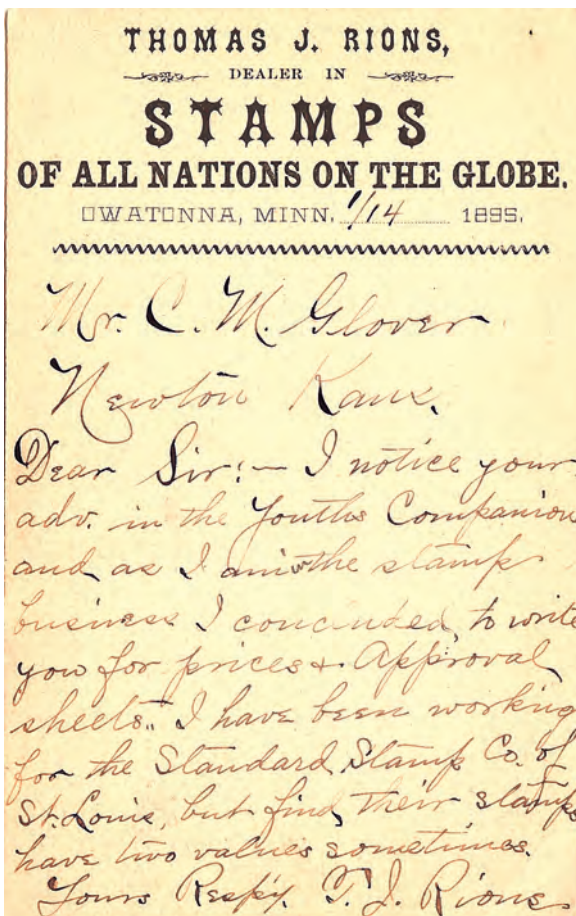 THOMAS J. RIONS,
DEALER IN
STAMPS
OF ALL NATIONS ON THE GLOBE.
OWATONNA, MINN. 1/14 1895.
Mr. C. M. Glover
Newton Kans.
Dear Sir:- I notice your
adv. in the Youths Companion
and as I am in the stamp
business I concluded, to write
you for prices & Approval
sheets. I have been working
for the Standard Stamp Co. of
St. Louis, but find, their stamps
have two values sometimes.
Yours Respy. T. J. Rions.